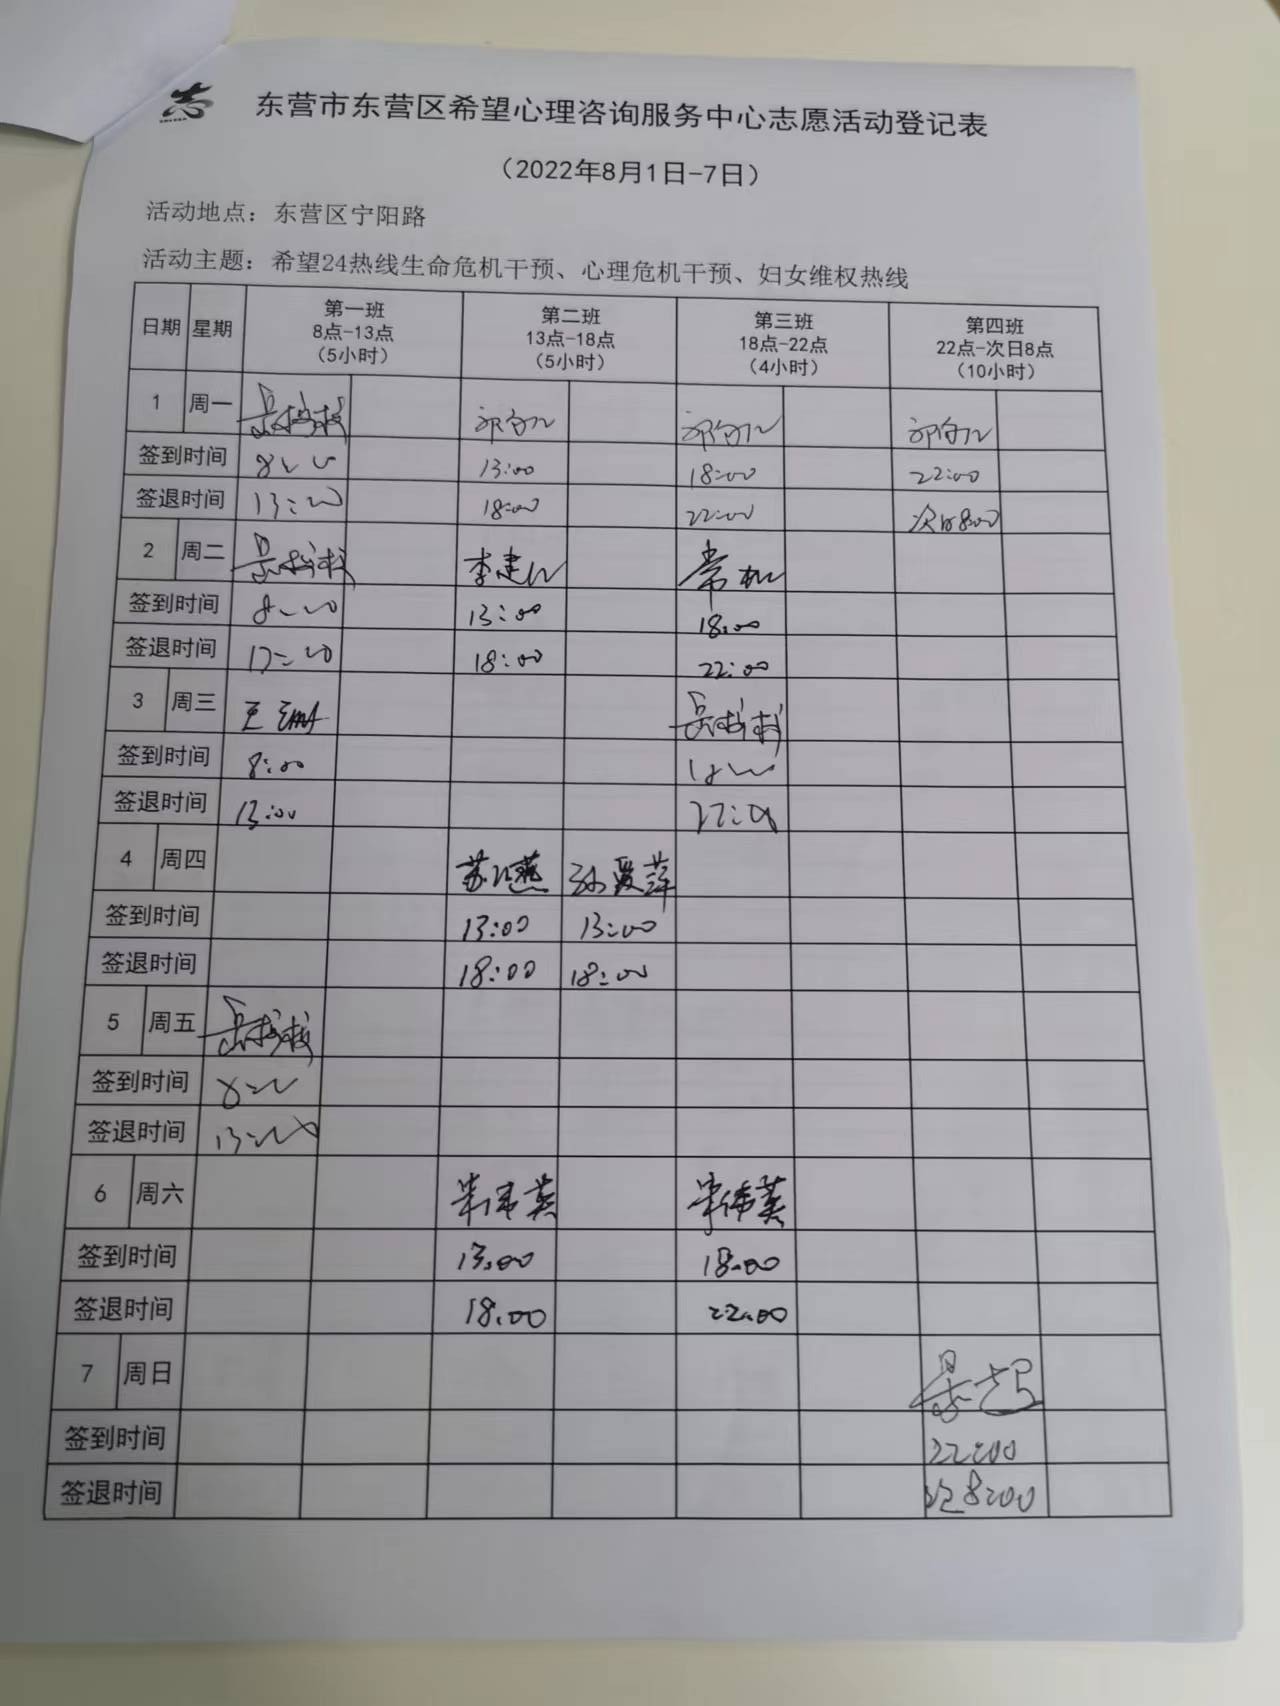 东营市东营区希望心理咨询服务中心志愿活动登记表
（2022年8月1日-7日）
活动地点：东营区宁阳路
活动主题：希望24热线生命危机干预、心理危机干预、妇女维权热线
日期 星期 第一班 8点-13点 （5小时） 第二班 13点-18点 （5小时） 第三班 18点-22点 （4小时） 第四班 22点-次日8点 （10小时）
1 周一
签到时间 13:00 18:00 22:00
签退时间 13:00 18:00 22:00 次日8:00
2 周二
签到时间 13:00 18:00
签退时间 18:00 22:00
3 周三
签到时间 8:00
签退时间 13:00
4 周四
签到时间 13:00 13:00
签退时间 18:00 18:00
5 周五
签到时间
签退时间 13:00
6 周六
签到时间 13:00 18:00
签退时间 18:00 22:00
7 周日
签到时间 22:00
签退时间 8:00